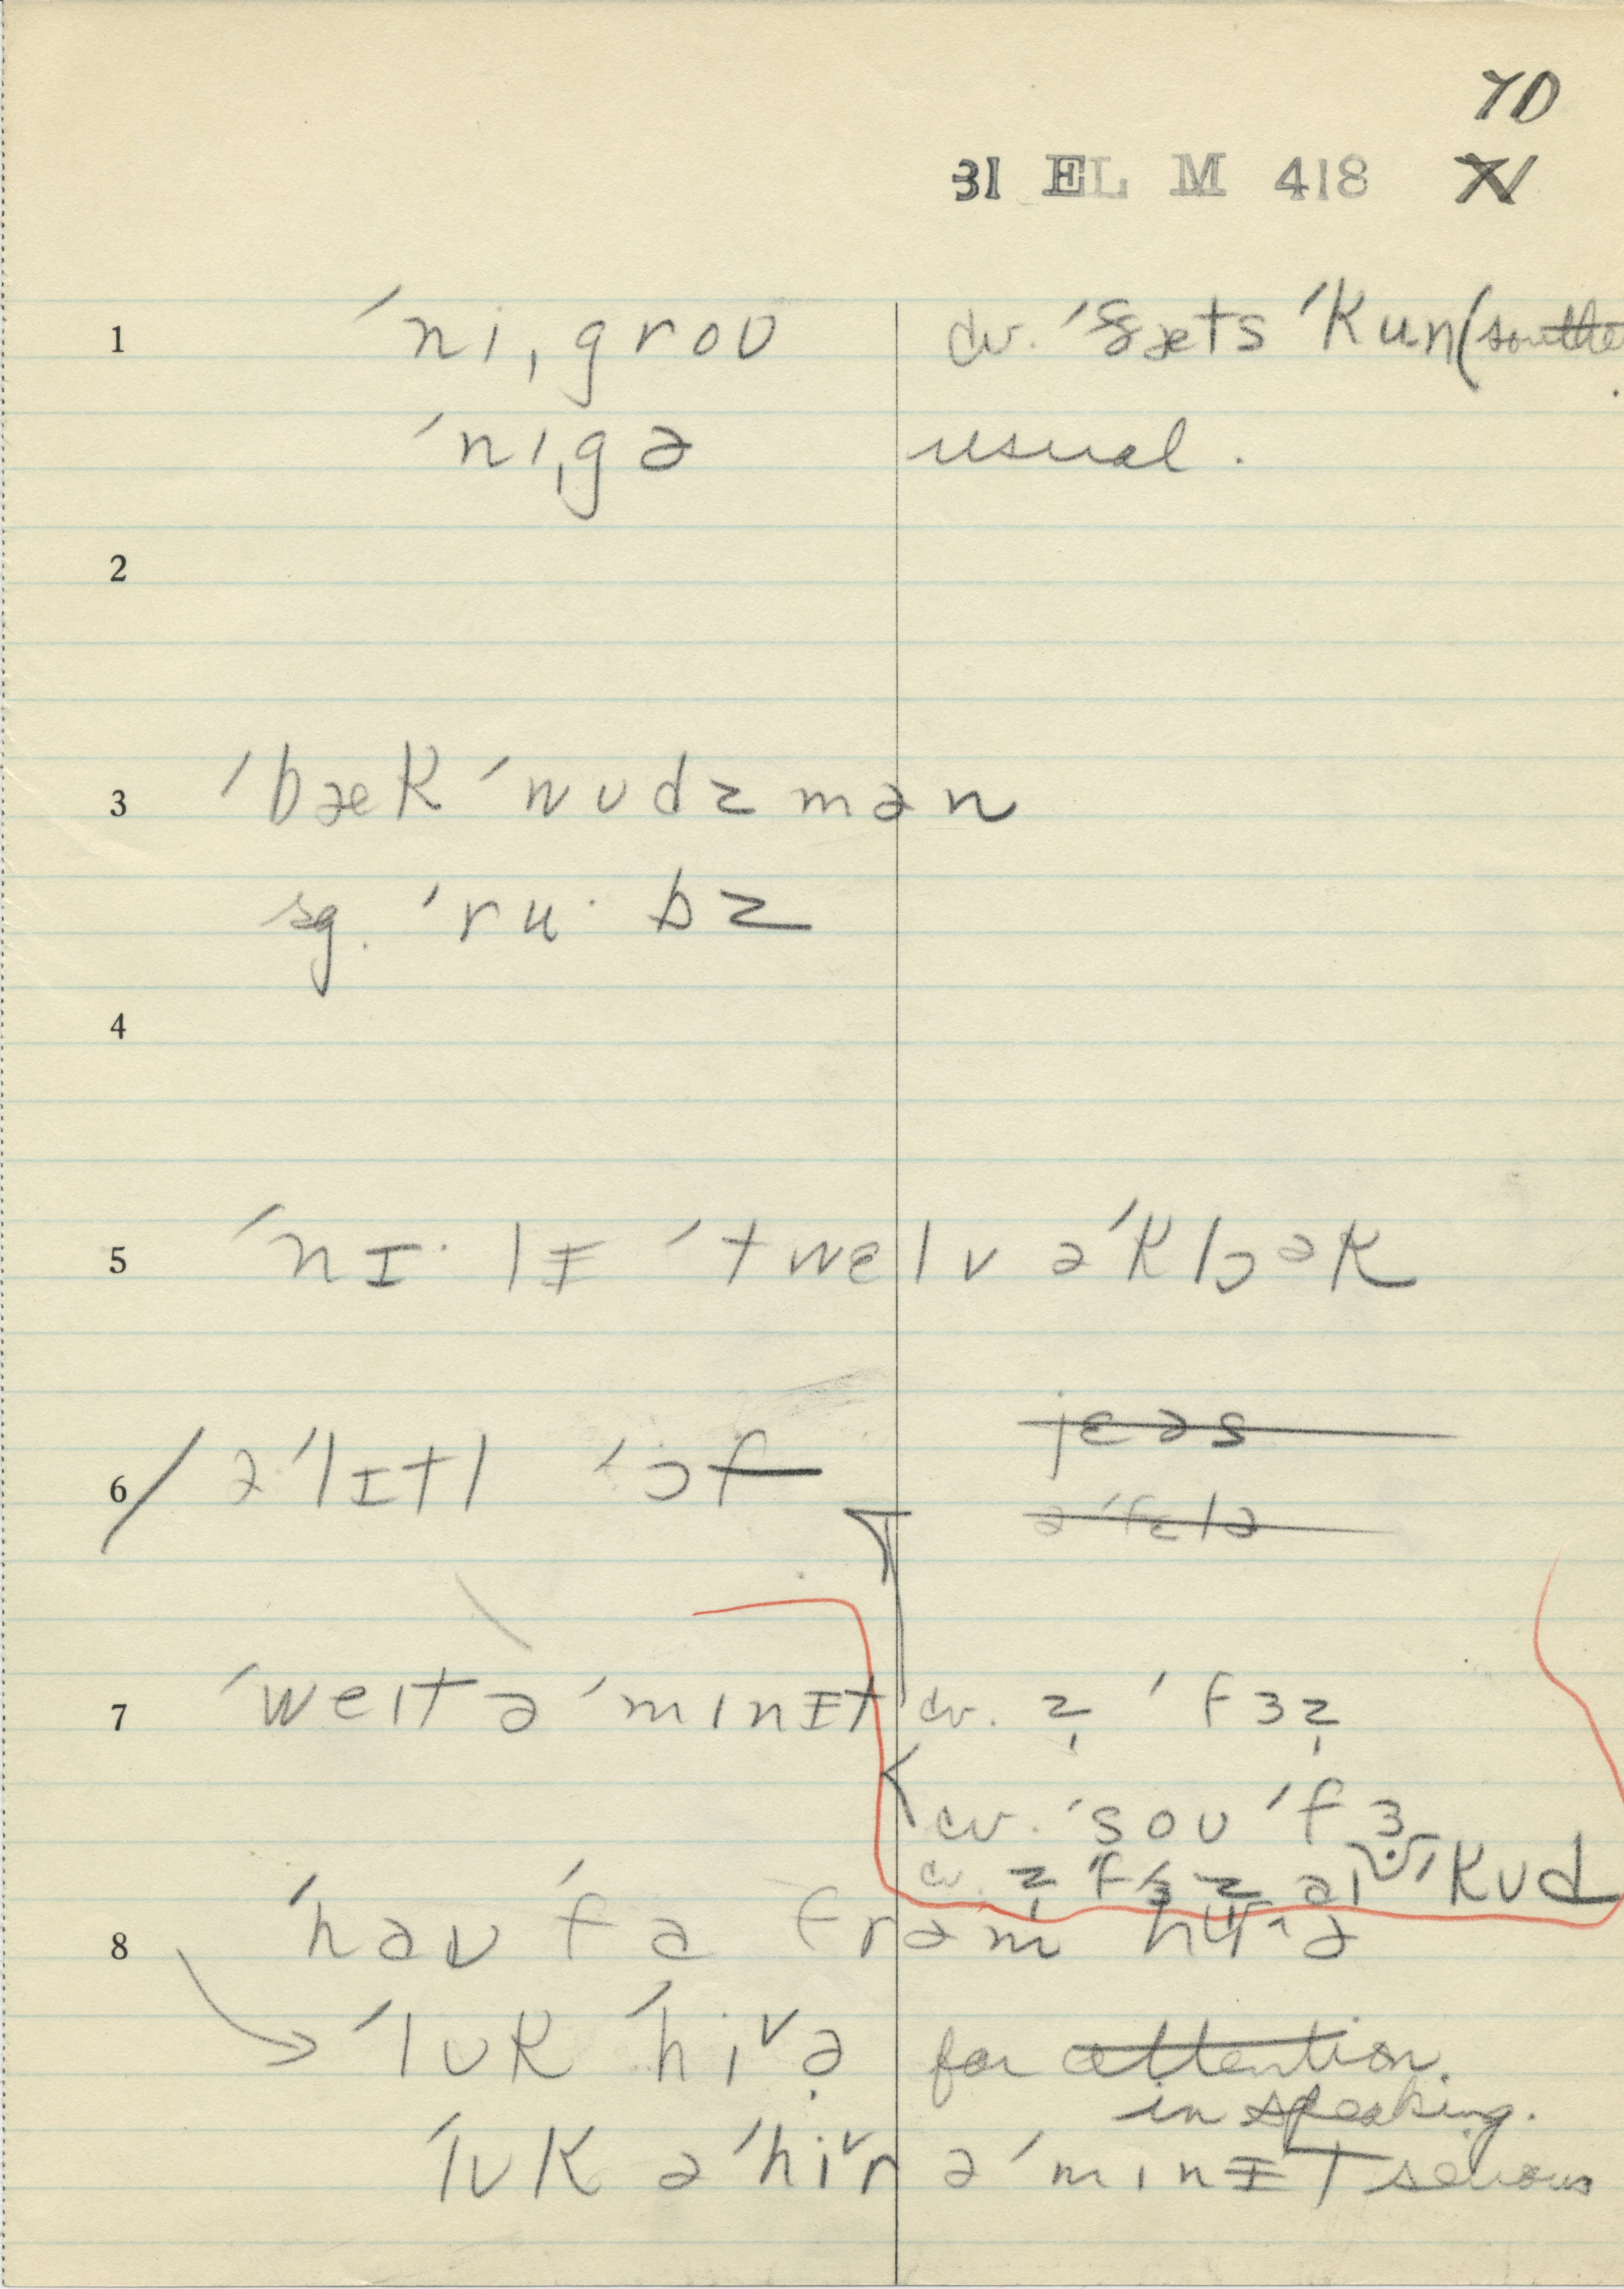 70
31 EL M 418
1 ˈniˌgroʊ cv. ˈðæts ˈkun (southe
ˈnɪˌgə usual.
2
3 ˈbæk ˈwʊdzmən
sg. ˈru·bz
4
5 ˈnɪ·lɨ ˈtwelv əˈklɒək
6 əˈlɪtl ˈɔf jɛəs
əˈfɛlə
7 ˈweɪt ə ˈmɪnɨt cv. z̩ ˈfɜz̩
cv. ˈsoʊ ˈfɜ
cv. z̩ ˈfɜz aɪ ˈkʊd
8 ˈhaʊ ˈfa frəm hɪə
ˈlʊk ˈhiˇə̣ for attention.
in speaking.
ˈlʊk əˈhiˇr ə ˈmɪnɨt serious